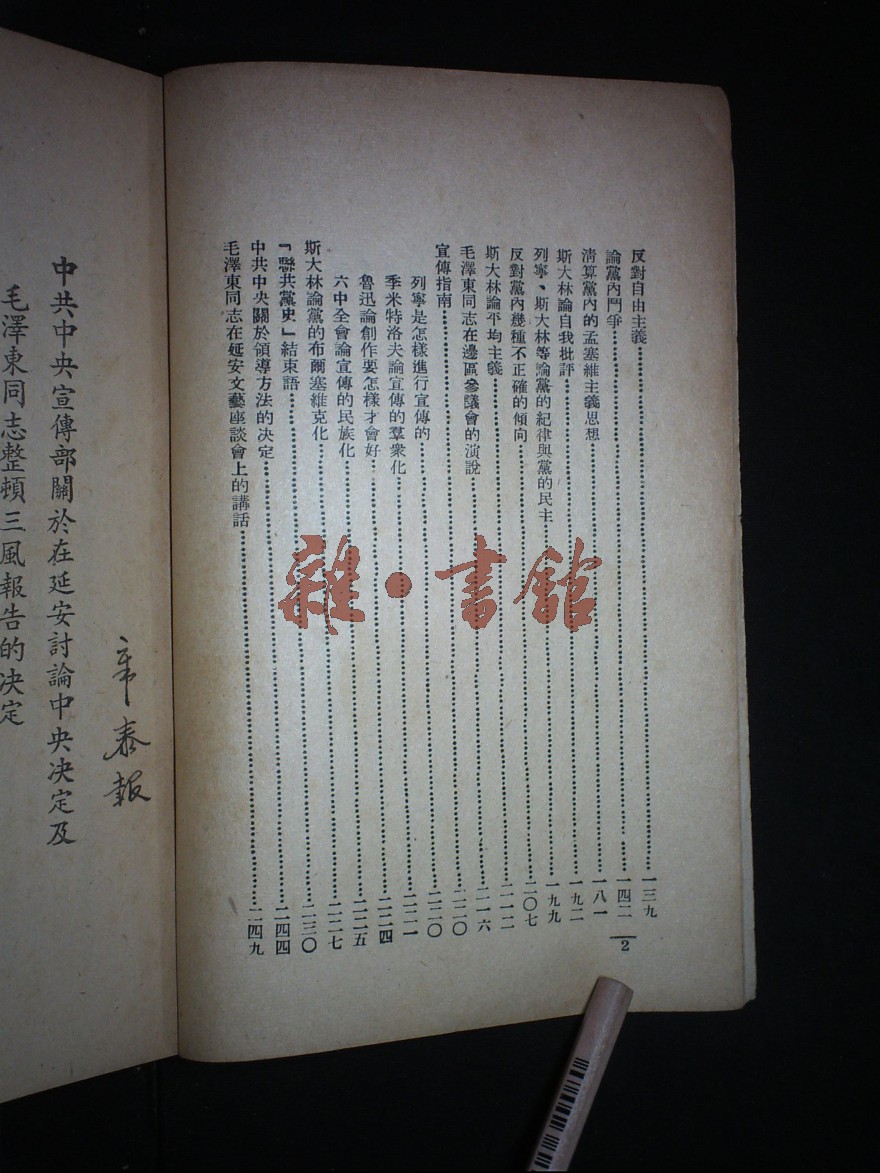 反對自由主義……一三九
論黨內鬥爭……一四二
清算黨內的孟塞維主義思想……一八一
斯大林論自我批評……一九二
列寧、斯大林等論黨的紀律與黨的民主……一九九
反對黨內幾種不正確的傾向……二〇七
斯大林論平均主義……二一二
毛澤東同志在邊區參議會的演說……二一六
宣傳指南……二二〇
列寧是怎樣進行宣傳的……二二〇
季米特洛夫論宣傳的羣衆化……二二一
魯迅論創作要怎樣才會好……二二四
六中全會論宣傳的民族化……二二五
斯大林論黨的布爾塞維克化……二二七
「聯共黨史」結束語……二三〇
中共中央關於領導方法的決定……二四四
毛澤東同志在延安文藝座談會上的講話……二四九
2
中共中央宣傳部關於在延安討論中央決定及
毛澤東同志整頓三風報告的決定
雜·書館